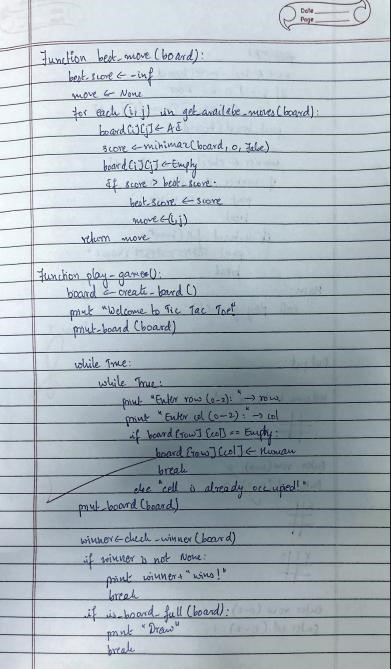 Date
Page
Function best_move (board):
best_score ← -inf
move ← None
for each (i, j) in get_availabe_moves (board):
board [i][j] ← AI
score ← minimax (board, 0, False)
board [i][j] ← Empty
if score > best_score:
best_score ← score
move ← (i, j)
return move
Function play_game():
board ← create_board ()
print "Welcome to Tic Tac Toe!"
print_board (board)
while True:
while True:
print "Enter row (0-2): " → row
print "Enter col (0-2): " → col
if board [row] [col] == Empty:
board [row] [col] ← Human
break
else "cell is already occupied!"
print_board (board)
winner ← check_winner (board)
if winner is not None:
print winner + "wins!"
break
if is_board_full (board):
print "Draw"
break